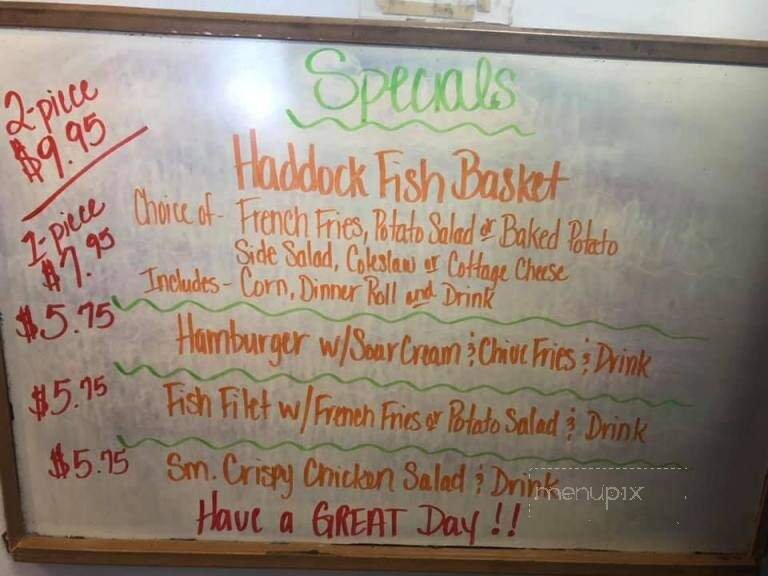 Specials
2-piece
$9.95
Haddock Fish Basket
1-piece
$7.95
Choice of - French Fries, Potato Salad or Baked Potato
Side Salad, Coleslaw or Cottage Cheese
Includes - Corn, Dinner Roll and Drink
$5.75 Hamburger w/Sour Cream & Chive Fries & Drink
$5.75 Fish Filet w/French Fries or Potato Salad & Drink
$5.75 Sm. Crispy Chicken Salad & Drink
menupix
Have a GREAT Day!!